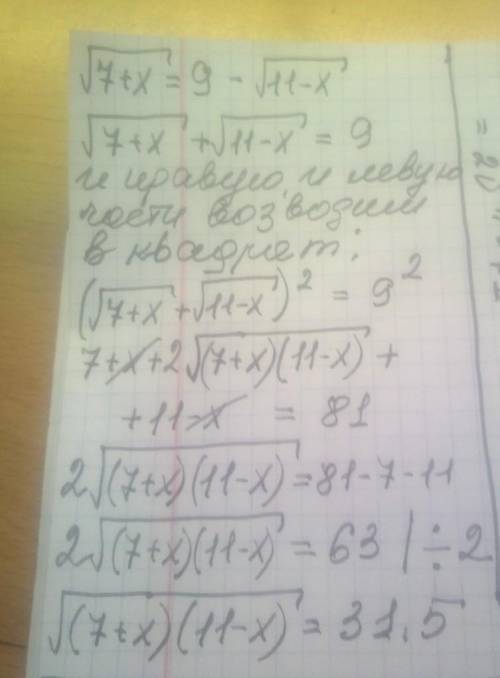 √7+x = 9 - √11-x
√7+x + √11-x = 9
и правую, и левую
части возводим
в квадрат:
(√7+x + √11-x)² = 9²
7+x+2√(7+x)(11-x) +
+11-x = 81
2√(7+x)(11-x) = 81-7-11
2√(7+x)(11-x) = 63 | ÷2
√(7+x)(11-x) = 31,5